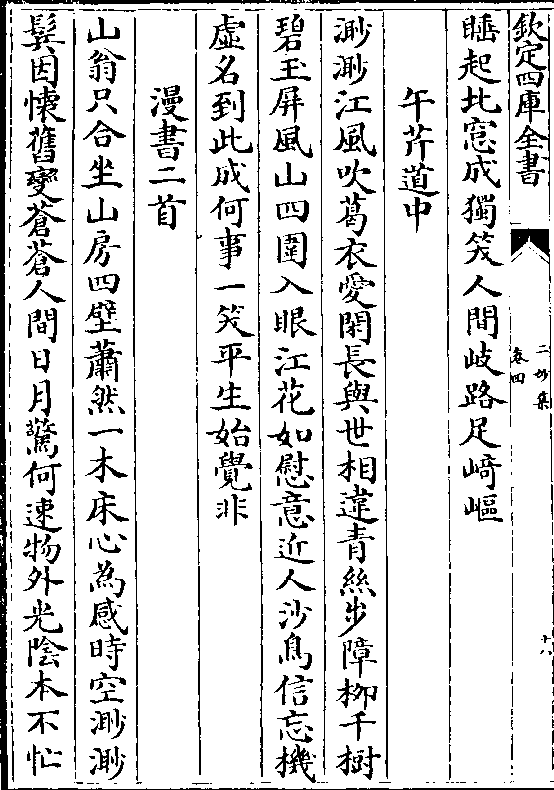 欽定四庫全書
二妙集
卷四
十八
睡起北窓成獨笑人間岐路足﨑嶇
午芹道中
渺渺江風吹葛衣愛閑長與世相違青絲步障柳千樹
碧玉屏風山四圍入眼江花如慰意近人沙鳥信忘機
虚名到此成何事一笑平生始覺非
漫書二首
山翁只合坐山房四壁蕭然一木床心為感時空渺渺
鬂因懷舊變蒼蒼人間日月驚何速物外光陰本不忙